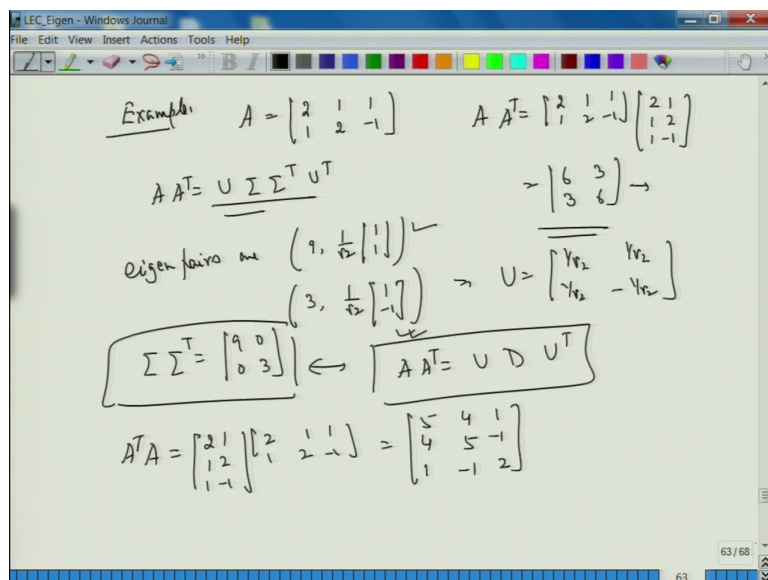 LEC_Eigen - Windows Journal
File Edit View Insert Actions Tools Help
Example. A = [2 1 1; 1 2 -1] A A^T = [2 1 1; 1 2 -1] [2 1; 1 2; 1 -1]
A A^T = U Σ Σ^T U^T = [6 3; 3 6] →
eigen pairs are (9, 1/√2 [1; 1]) ✓
(3, 1/√2 [1; -1]) → U = [1/√2 1/√2; 1/√2 -1/√2]
Σ Σ^T = [9 0; 0 3] ↔ A A^T = U D U^T
A^T A = [2 1; 1 2; 1 -1] [2 1 1; 1 2 -1] = [5 4 1; 4 5 -1; 1 -1 2]
63 / 68
63